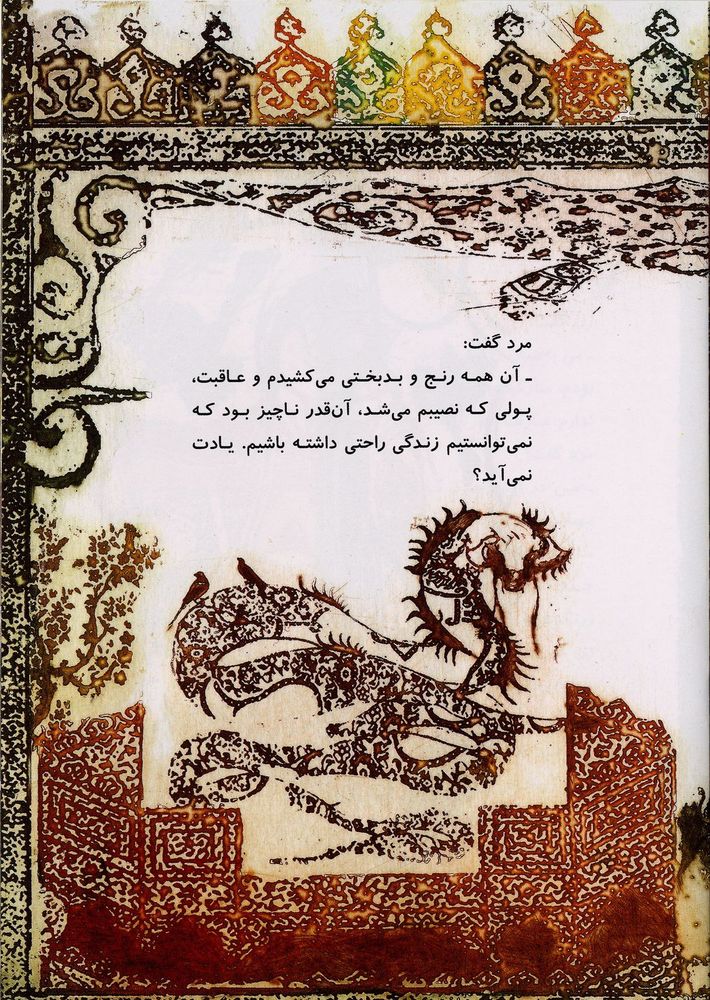 مرد گفت:
ـ آن همه رنج و بدبختی می‌کشیدم و عاقبت،
پولی که نصیبم می‌شد، آن‌قدر ناچیز بود که
نمی‌توانستیم زندگی راحتی داشته باشیم. یادت
نمی‌آید؟